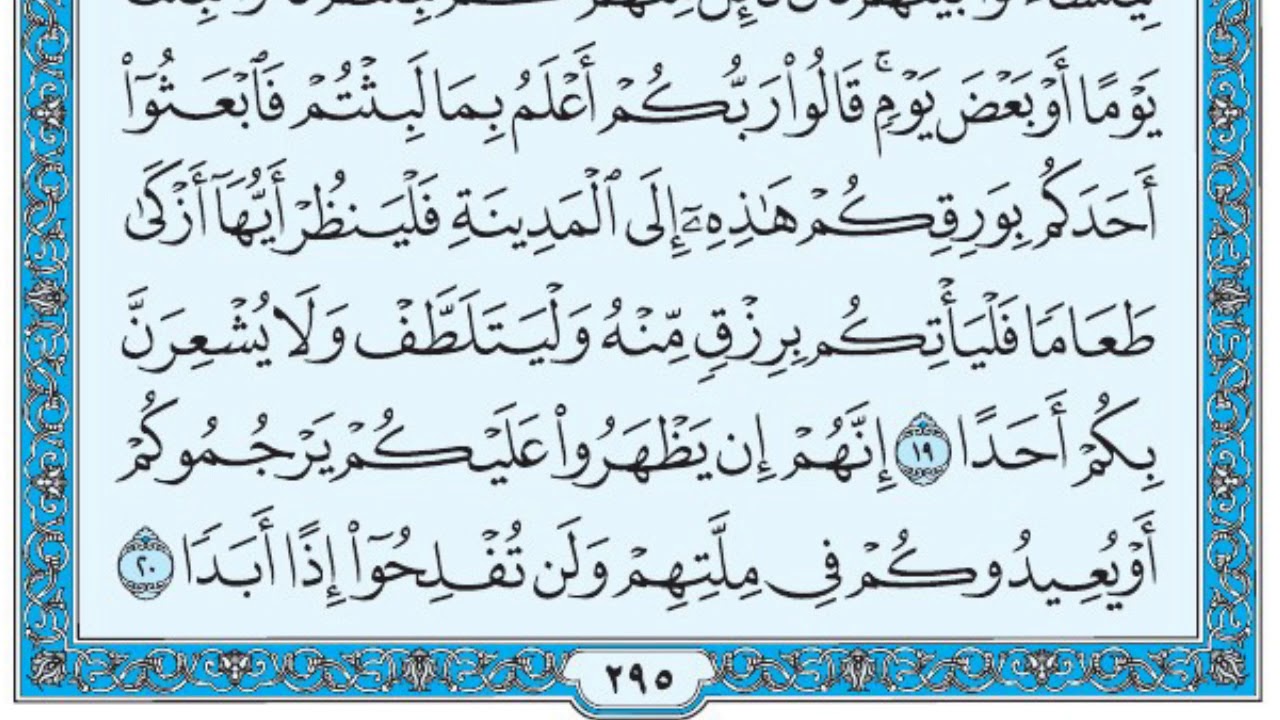 يَوْمًا أَوْ بَعْضَ يَوْمٍ ۚ قَالُوا۟ رَبُّكُمْ أَعْلَمُ بِمَا لَبِثْتُمْ فَٱبْعَثُوٓا۟
أَحَدَكُم بِوَرِقِكُمْ هَـٰذِهِۦٓ إِلَى ٱلْمَدِينَةِ فَلْيَنظُرْ أَيُّهَآ أَزْكَىٰ
طَعَامًا فَلْيَأْتِكُم بِرِزْقٍ مِّنْهُ وَلْيَتَلَطَّفْ وَلَا يُشْعِرَنَّ
بِكُمْ أَحَدًا ١٩ إِنَّهُمْ إِن يَظْهَرُوا۟ عَلَيْكُمْ يَرْجُمُوكُمْ
أَوْ يُعِيدُوكُمْ فِى مِلَّتِهِمْ وَلَن تُفْلِحُوٓا۟ إِذًا أَبَدًا ٢٠
٢٩٥